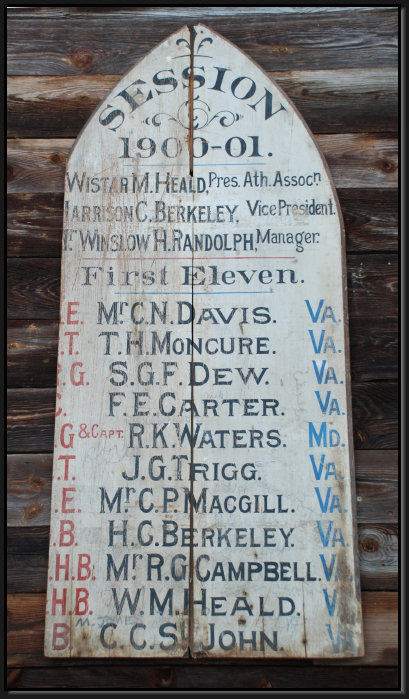 SESSION
1900-01.
WISTAR M. HEALD, Pres. Ath. Assocn.
HARRISON C. BERKELEY, Vice President.
Mr WINSLOW H. RANDOLPH, Manager.
First Eleven.
.E. Mr C. N. DAVIS. VA.
.T. T. H. MONCURE. VA.
.G. S. G. F. DEW. VA.
C. F. E. CARTER. VA.
G & CAPT. R. K. WATERS. MD.
.T. J. G. TRIGG. VA.
.E. Mr C. P. MACGILL. VA.
.B. H. C. BERKELEY. VA.
.H.B. Mr R. G CAMPBELL. V
.H.B. W. M. HEALD. V
B C. C. St JOHN. VA